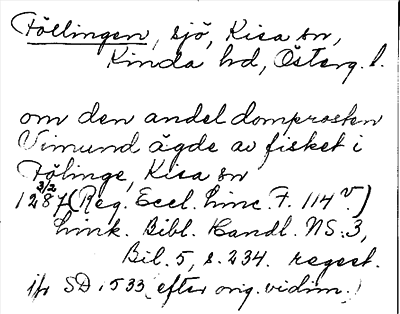 Föllingen, sjö, Kisa sn,
Kinda hd, Österg. l.
om den andel domprosten
Vimund ägde av fisket i
Fölinge, Kisa sn
3/2
1287 (Reg. Eccl. Linc. F. 114 v.)
Link. Bibl. Handl. NS. 3,
Bil. 5, s. 234. regest.
jfr SD. 1533 (efter orig. vidim.)